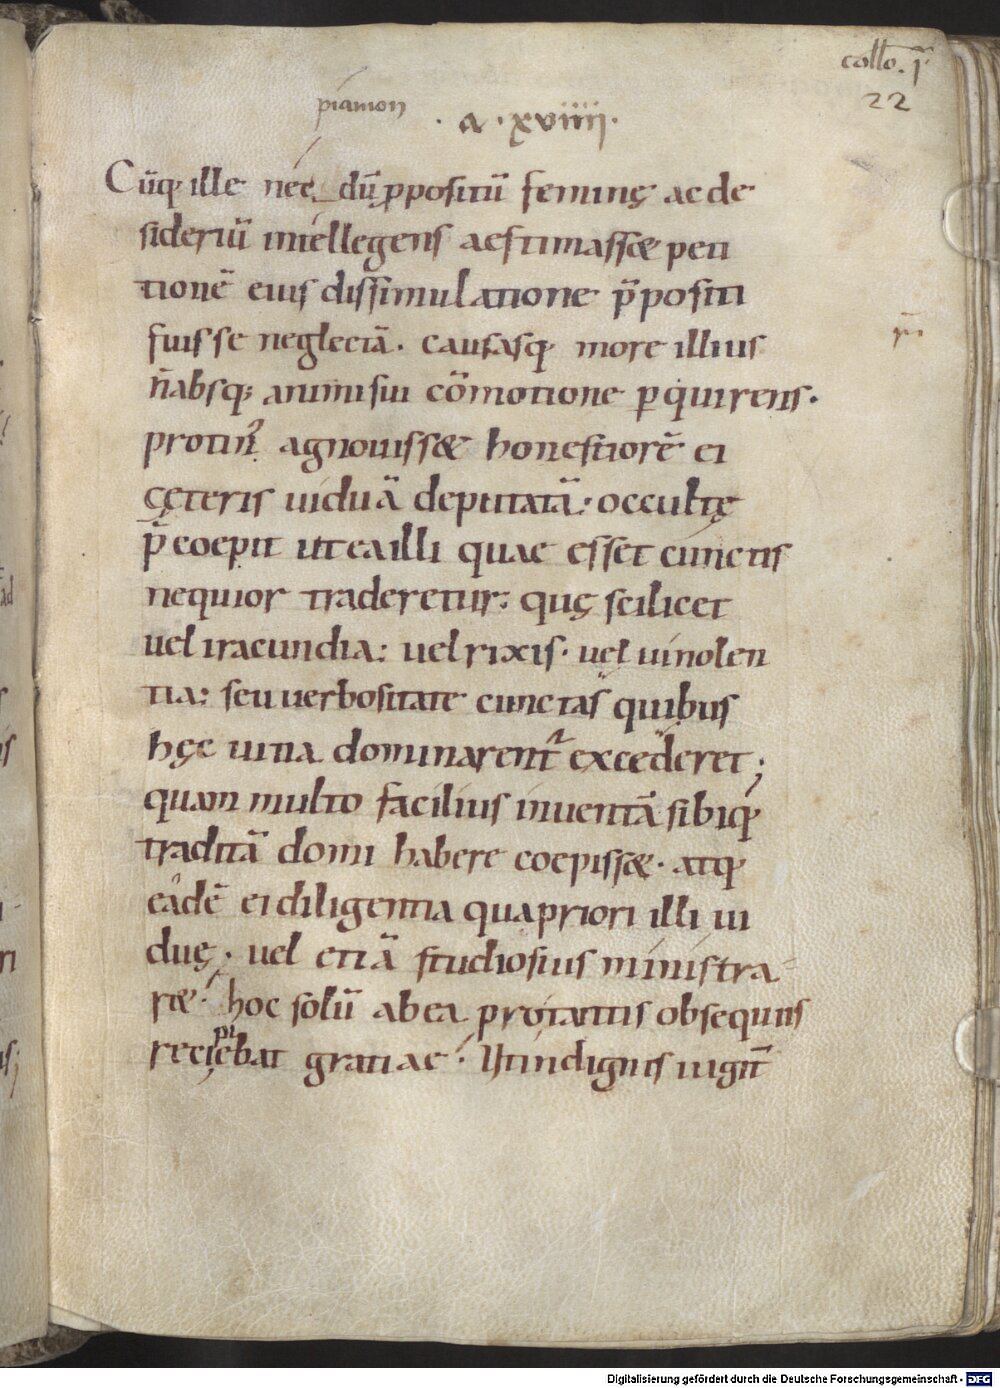 collo. ī
22
piamon
· a · xviiii ·
Cūq; ille nec dū p̄positū feminę ac de
sideriū intellegens aestimass& peti
tionē eius dissimulatione p̄positi
fuisse neglectā. causasq; more illius
n̄ absq; animi sui cōmotione perquirens.
protin' agnouiss& honestiorē ei
cęteris uiduā deputatā. occultę
p̄coepit ut ea illi quae esset cunctis
nequior traderetur. quę scilicet
uel iracundia: uel rixis. uel uinolen
tia: seu uerbositate cunctas quibus
hęc uitia dominarent̄ excederet;
quam multo facilius inuentā sibiq;
traditā domi habere coepiss&. atq;
eādē ei diligentia qua priori illi ui
duę. uel etiā studiosius ministra
r&. hoc solū ab ea pro tantis obsequiis
recipiebat gratiae. Ut indignis iugit̄